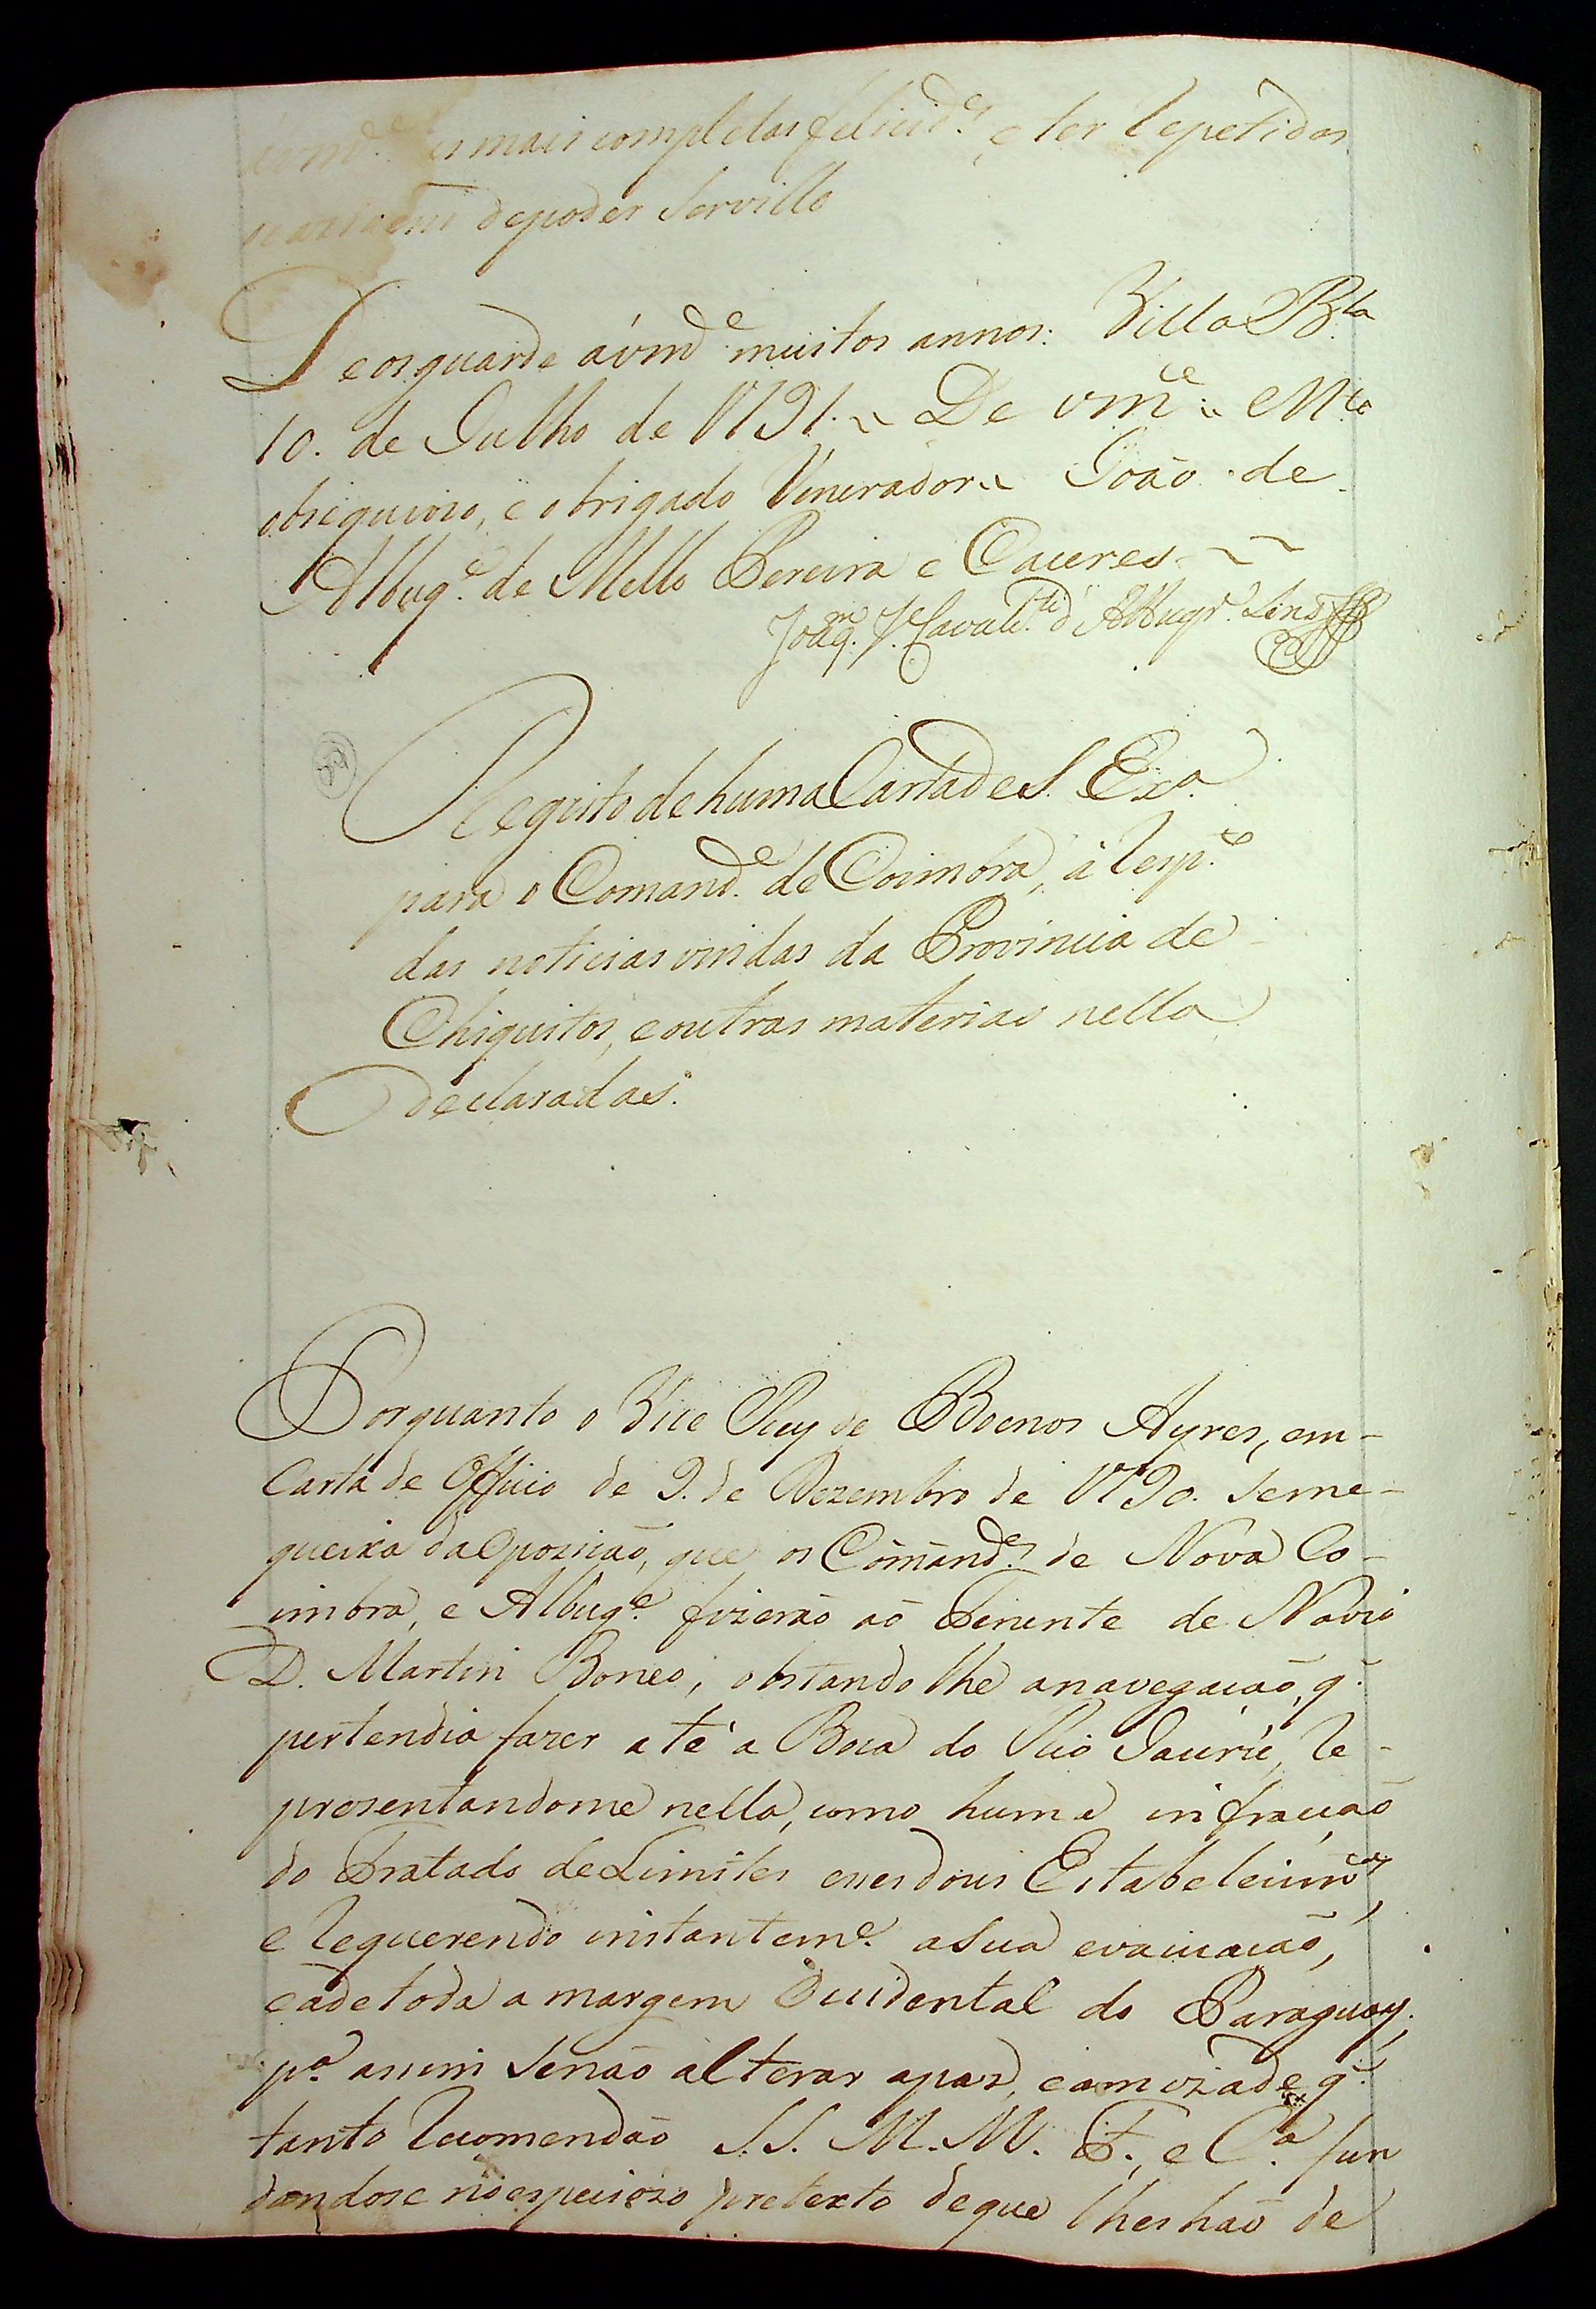 as mais completas felicid.es, e ter repetidas
de poder servillo
Deos guarde a vm.ce muitos annos. Villa B.la
10. de Julho de 1791. ~ De vm.ce ~ M.to
obsequioso, e obrigado Venerador ~ João de
Albuq.e de Mello Pereira e Caceres ~ ~
Joaq.m J.e Cavalc.ti d'Albuqr.e Lins
Registo de huma Carta de S. Ex.a
para o Comand.e de Coimbra, á resp.to
das noticias vindas da Provincia de
Chiquitos, e outras materias nella
declaradas.
Porquanto o Vice Rey de Buenos Ayres, em-
Carta de Officio de 9. de Dezembro de 1790. se me-
queixa da Oposição, que os Cõmand.es de Nova Co-
imbra, e Albuq.e fizerão aõ Tenente de Navio
D. Martin Boneo, obstandolhe a navegação, q.
pertendia fazer até a Boca do Rio Jaurú, re-
presentandome nella, como huma infracção
do Tratado de Limites esses dous Estabelecim.tos,
e requerendo instantem.e a sua evacuação,
e a de toda a margem Occidental do Paraguay,
p.a assim se não alterar a paz, e amizade, q.
tanto recomendão S.S. M.M. F., e C.a fun
dandose no especiozo pretexto de que lhes hão de